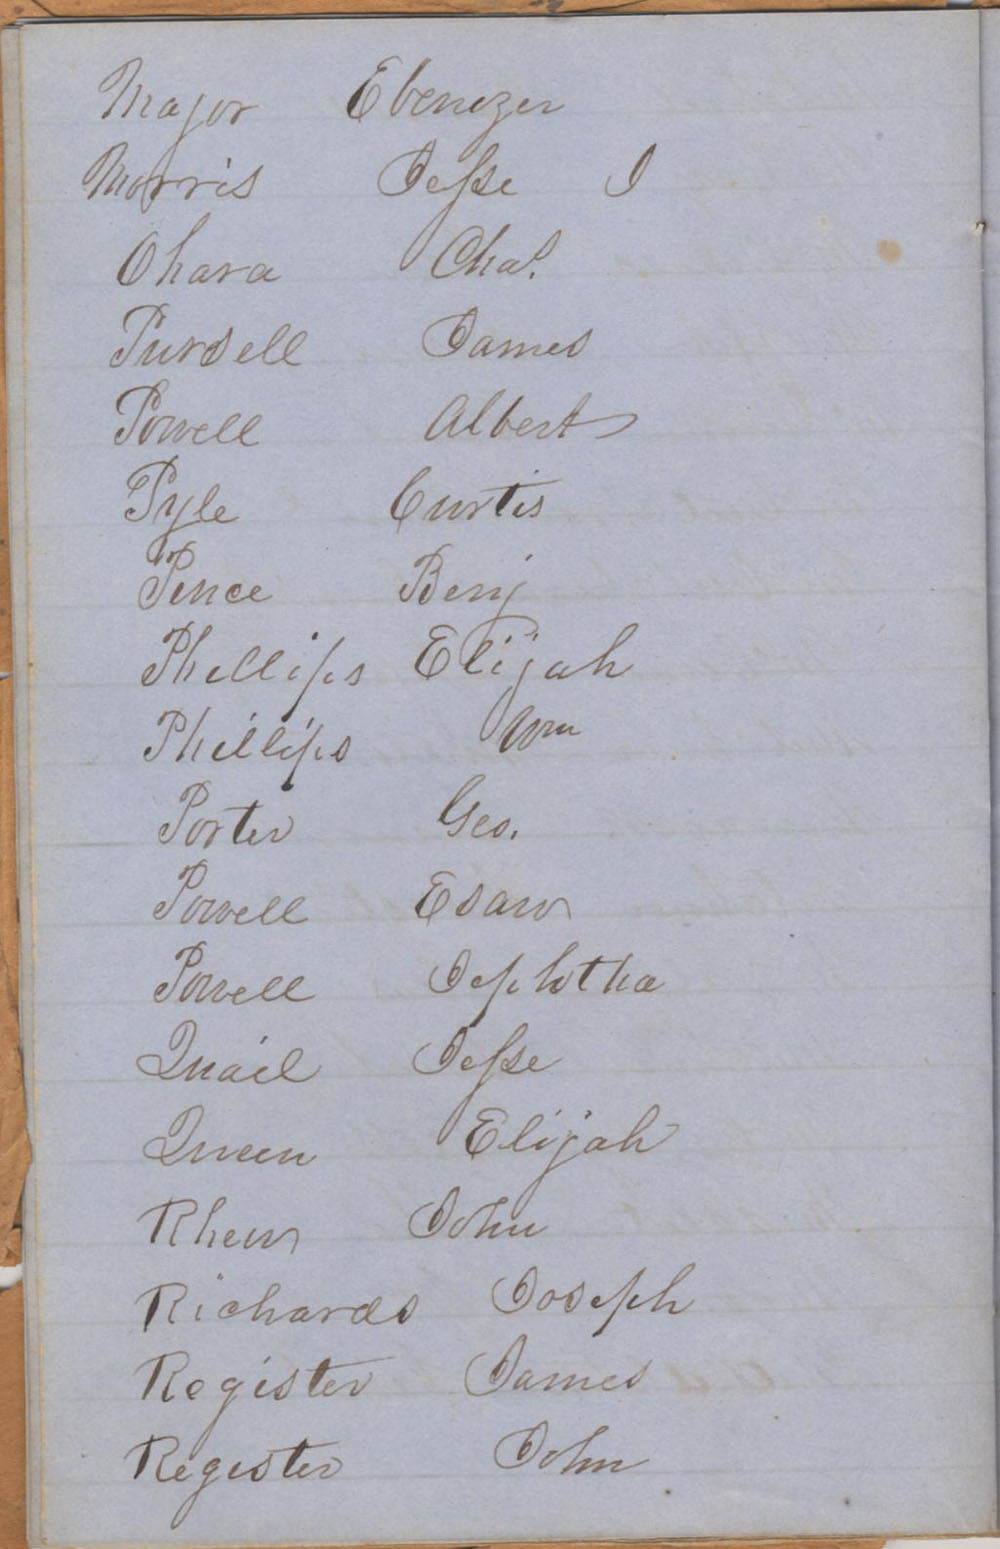 Major Ebenezer
Morris Jesse J
Ohara Chas.
Pursell James
Powell Albert
Pyle Curtis
Pence Benj
Phillips Elijah
Phillips Wm
Porter Geo.
Powell Esaw
Powell Jephtha
Quail Jesse
Queen Elijah
Rhew John
Richards Joseph
Register James
Register John